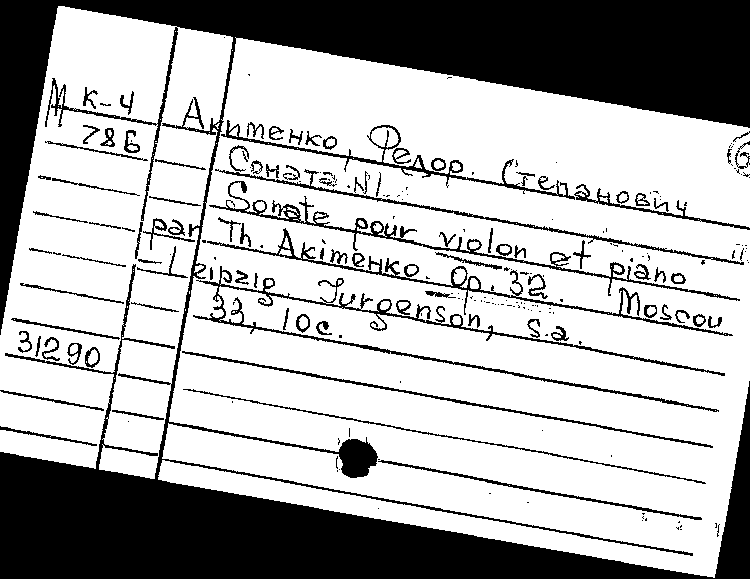 М К-4
786
Акименко, Федор Степанович
Соната N1
Sonate pour violon et piano
par Th. Akimенко. Op. 32. Moscou
–Leipzig, Jurgenson, s.a.
33, 10c.
31290